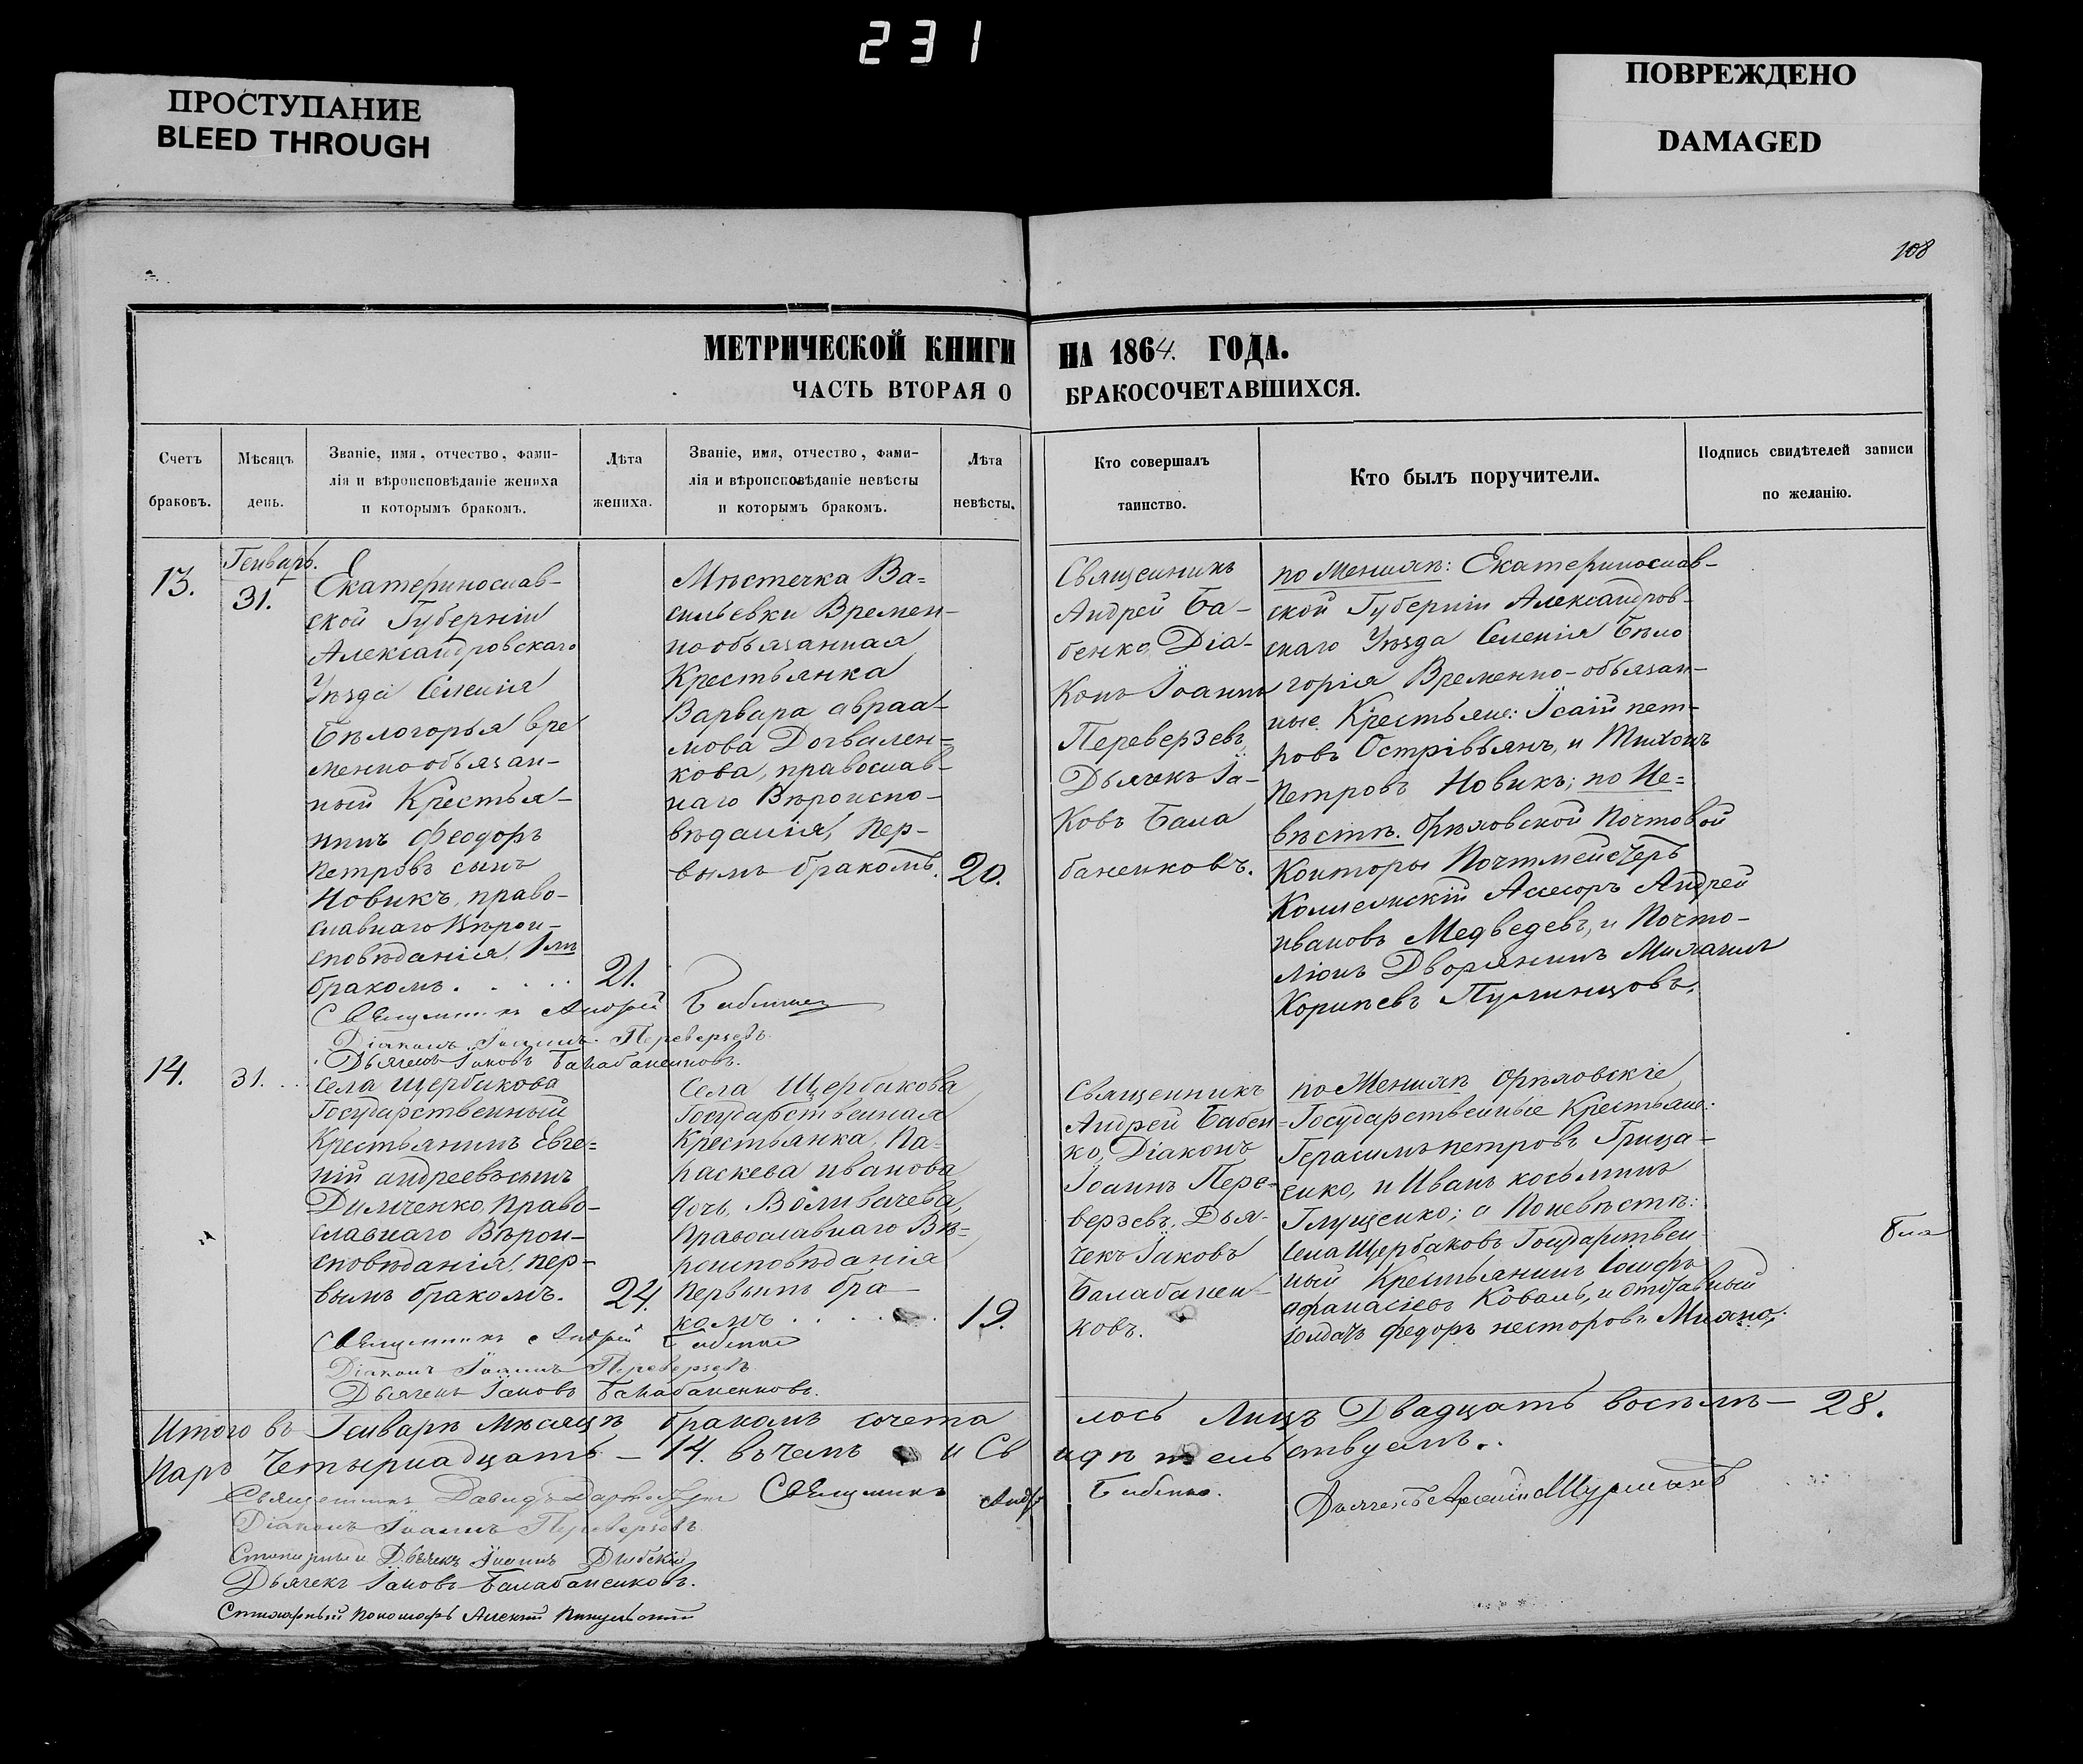 231
ПРОСТУПАНИЕ
BLEED THROUGH
ПОВРЕЖДЕНО
DAMAGED
108
МЕТРИЧЕСКОЙ КНИГИ НА 1864. ГОДА.
ЧАСТЬ ВТОРАЯ О БРАКОСОЧЕТАВШИХСЯ.
Счетъ
браковъ.
Мѣсяцъ
день.
Званіе, имя, отчество, фами-
лія и вѣроисповѣданіе жениха
и которымъ бракомъ.
Лѣта
жениха.
Званіе, имя, отчество, фами-
лія и вѣроисповѣданіе невѣсты
и которымъ бракомъ.
Лѣта
невѣсты.
Кто совершалъ
таинство.
Кто былъ поручители.
Подпись свидѣтелей записи
по желанію.
13.
Генварь.
31.
Екатеринослав-
ской Губерніи
Александровскаго
Уѣзда Селенія
Бѣлогорья вре
менно обязан-
ный Крестья-
нинъ Феодоръ
Петровъ сынъ
Новикъ, право-
славнаго Вѣрои-
сповѣданія, 1мъ
бракомъ. . . . .
21.
Мѣстечка Ва=
сильевки Времен-
но обязанная
Крестьянка
Варвара авраа-
мова Довален=
кова, православ-
наго Вѣроиспо-
вѣданія, пер-
вымъ бракомъ.
20.
Священникъ
Андрей Ба-
бенко, Діа-
конъ Іоаннъ
Переверзевъ,
Дьячекъ Іа-
ковъ Бала
баненковъ.
по Женихѣ: Екатеринослав-
ской Губерніи Александров-
скаго Уѣзда Селенія Бѣло
горія Временно-обязан-
ные Крестьяне: Ісаій пет-
ровъ и Тихонъ
Петровъ Новикъ; по Не=
вѣстѣ. Орѣховской Почтовой
Конторы Почтмейстеръ
Коллежскій Ассесоръ Андрей
ивановъ Медведевъ, и Почто-
Дворянинъ Михаилъ
Священникъ Андрей Бабенко
Діаконъ Іоаннъ Переверзевъ
Дьячекъ Іаковъ Балабаненковъ.
14.
31. . .
Села Щербакова
Государственный
Крестьянинъ Евге=
ній андреевъ сынъ
Право-
славнаго Вѣрои-
сповѣданія, пер-
вымъ бракомъ.
24.
Села Щербакова
Государственная
Крестьянка, Па-
раскева иванова
дочь,
Православнаго Вѣ-
роисповѣданія
первымъ бра-
комъ . . . . .
19.
Священникъ
Андрей Бабен=
ко, Діаконъ
Іоаннъ Пере-
верзевъ, Дья-
чекъ Іаковъ
Балабанен-
ковъ.
по Женихѣ Орѣховскіе
Государственные Крестьяне:
Герасимъ петровъ Грица-
енко, и Иванъ косьминъ
Глущенко; а По невѣстѣ:
Села Щербаковъ Государствен-
ный Крестьянинъ Іосифъ
афанасіевъ Коваль, и отставный
солдатъ федоръ несторовъ
Священникъ Андрей Бабенко
Діаконъ Іоаннъ Переверзевъ
Дьячекъ Іаковъ Балабаненковъ.
Итого въ Генварѣ мѣсяцѣ бракомъ сочета лось Лицъ Двадцать восемь — 28.
Паръ Четырнадцать — 14. въ чемъ и Св идѣтельствуемъ.
Священникъ Давидъ
Священникъ Андрей Бабенко.
Діаконъ Іоаннъ Переверзевъ
Дьячекъ Іоаннъ
Дьячекъ Іаковъ Балабаненковъ.
Стихарный Пономарь Алексій